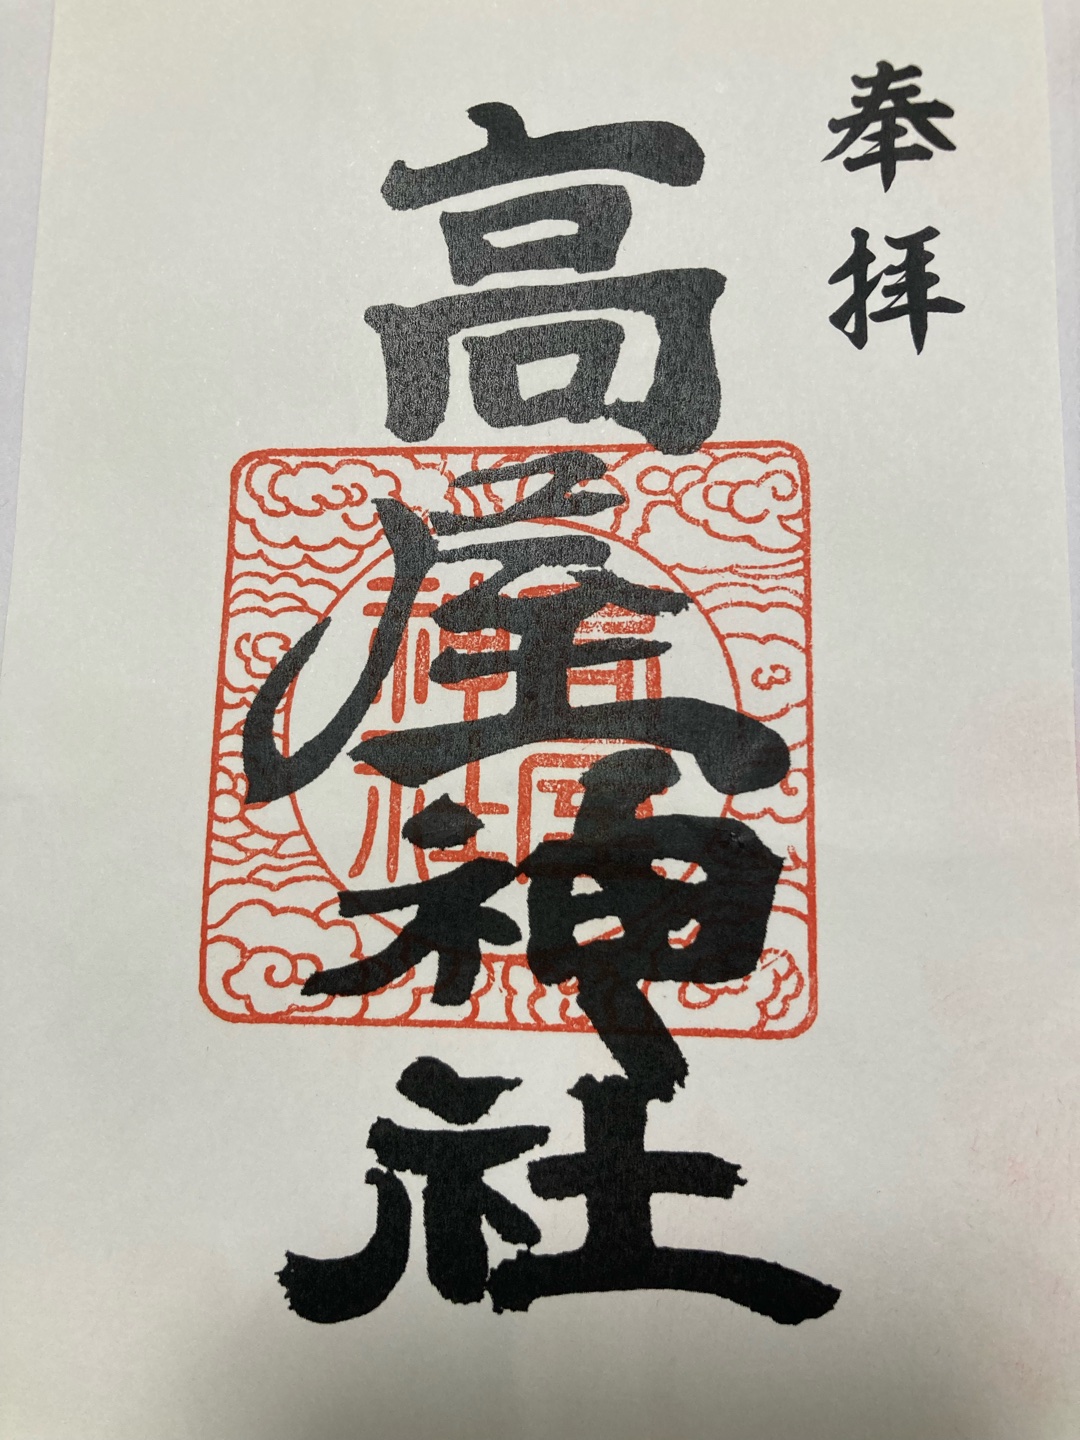 奉拝
高屋神社
高屋
神社